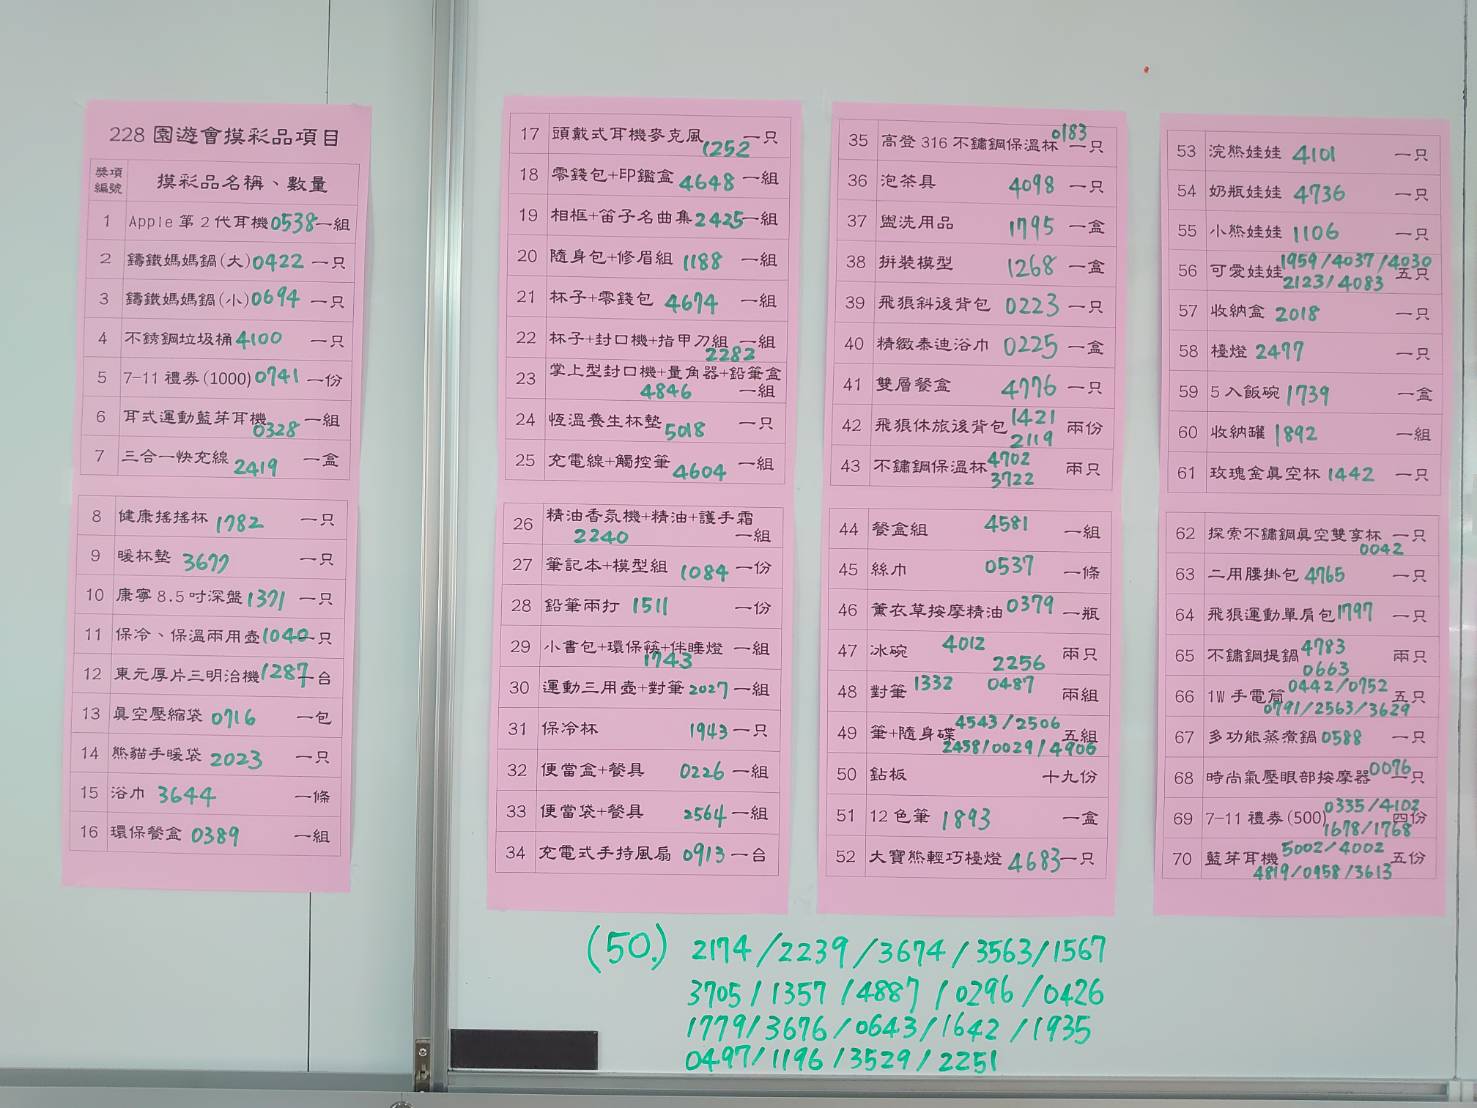 228 園遊會摸彩品項目
獎項編號 摸彩品名稱、數量
1 Apple 第 2 代耳機 0538 一組
2 鑄鐵媽媽鍋(大) 0422 一只
3 鑄鐵媽媽鍋(小) 0694 一只
4 不銹鋼垃圾桶 4100 一只
5 7-11 禮券(1000) 0741 一份
6 耳式運動藍芽耳機 0328 一組
7 三合一快充線 2419 一盒
8 健康搖搖杯 1782 一只
9 暖杯墊 3677 一只
10 康寧 8.5 吋深盤 1371 一只
11 保冷、保溫兩用壺 1040 一只
12 東元厚片三明治機 1287 一台
13 真空壓縮袋 0716 一包
14 熊貓手暖袋 2023 一只
15 浴巾 3644 一條
16 環保餐盒 0389 一組
17 頭戴式耳機麥克風 1252 一只
18 零錢包+EP鑑盒 4648 一組
19 相框+笛子名曲集 2425 一組
20 隨身包+修眉組 1188 一組
21 杯子+零錢包 4674 一組
22 杯子+封口機+指甲刀組 2282 一組
23 掌上型封口機+量角器+鉛筆盒 4846 一組
24 恆溫養生杯墊 5018 一只
25 充電線+觸控筆 4604 一組
26 精油香氛機+精油+護手霜 2240 一組
27 筆記本+模型組 1084 一份
28 鉛筆兩打 1511 一份
29 小書包+環保筷+伴睡燈 1743 一組
30 運動三用壺+對筆 2027 一組
31 保冷杯 1943 一只
32 便當盒+餐具 0226 一組
33 便當袋+餐具 2564 一組
34 充電式手持風扇 0913 一台
35 高登 316 不鏽鋼保溫杯 0183 一只
36 泡茶具 4098 一只
37 盥洗用品 1795 一盒
38 拼裝模型 1268 一盒
39 飛狼斜後背包 0223 一只
40 精緻泰迪浴巾 0225 一盒
41 雙層餐盒 4776 一只
42 飛狼休旅後背包 1421 2119 兩份
43 不鏽鋼保溫杯 4702 3722 兩只
44 餐盒組 4581 一組
45 絲巾 0537 一條
46 薰衣草按摩精油 0379 一瓶
47 冰碗 4012 2256 兩只
48 對筆 1332 0487 兩組
49 筆+隨身碟 4543/2506 2458/0029/4906 五組
50 鉆板 十九份
51 12 色筆 1893 一盒
52 大寶熊輕巧檯燈 4683 一只
53 浣熊娃娃 4101 一只
54 奶瓶娃娃 4736 一只
55 小熊娃娃 1106 一只
56 可愛娃娃 1959/4037/4030 2123/4083 五只
57 收納盒 2018 一只
58 檯燈 2477 一只
59 5 入飯碗 1739 一盒
60 收納罐 1892 一組
61 玫瑰金真空杯 1442 一只
62 探索不鏽鋼真空雙享杯 0042 一只
63 二用腰掛包 4765 一只
64 飛狼運動單肩包 1797 一只
65 不鏽鋼提鍋 4783 0663 兩只
66 1W 手電筒 0442/0752 0791/2563/3629 五只
67 多功能蒸煮鍋 0588 一只
68 時尚氣壓眼部按摩器 0076 一只
69 7-11 禮券(500) 0335/4102 1678/1768 四份
70 藍芽耳機 5002/4002 4819/0958/3613 五份
(50.) 2174/2239/3674/3563/1567
3705/1357/4887/0296/0426
1779/3676/0643/1642/1935
0497/1196/3529/2251